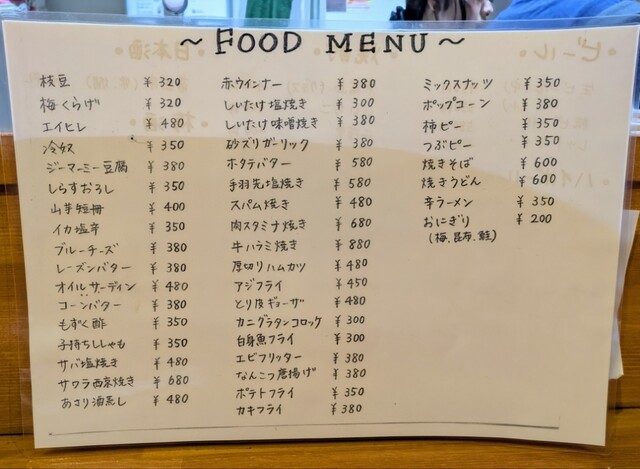 ~ FOOD MENU ~
枝豆 ¥320
梅くらげ ¥320
エイヒレ ¥480
冷奴 ¥350
ジーマーミー豆腐 ¥380
しらすおろし ¥350
山芋短冊 ¥400
イカ塩辛 ¥350
ブルーチーズ ¥380
レーズンバター ¥380
オイルサーディン ¥480
コーンバター ¥380
もずく酢 ¥350
子持ちししゃも ¥350
サバ塩焼き ¥480
サワラ西京焼き ¥680
あさり酒蒸し ¥480
赤ウインナー ¥380
しいたけ塩焼き ¥300
しいたけ味噌焼き ¥380
砂ズリガーリック ¥380
ホタテバター ¥580
手羽先塩焼き ¥580
スパム焼き ¥480
肉スタミナ焼き ¥680
牛ハラミ焼き ¥880
厚切りハムカツ ¥480
アジフライ ¥450
とり皮ギョーザ ¥480
カニグラタンコロッケ ¥300
白身魚フライ ¥300
エビフリッター ¥380
なんこつ唐揚げ ¥380
ポテトフライ ¥350
カキフライ ¥380
ミックスナッツ ¥350
ポップコーン ¥380
柿ピー ¥350
つぶピー ¥350
焼きそば ¥600
焼きうどん ¥600
辛ラーメン ¥350
おにぎり ¥200
(梅、昆布、鮭)